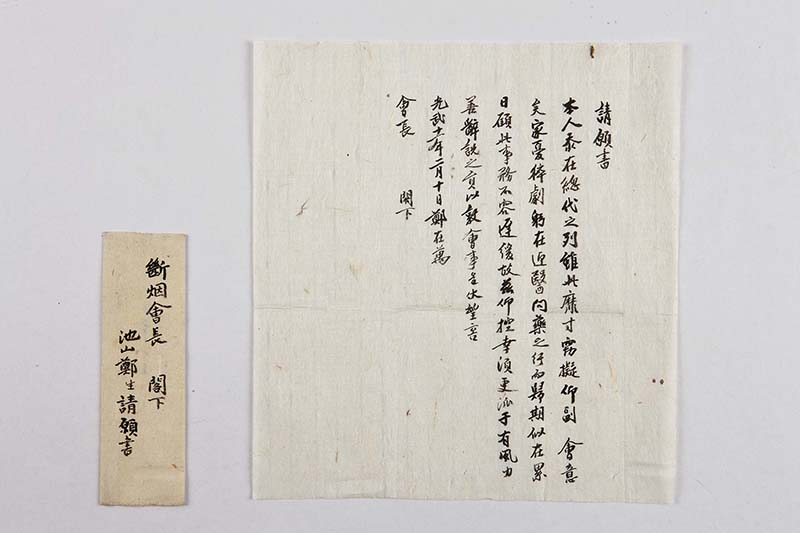 請願書
本人忝在總代之列雖此靡寸竊擬仰副 會意
矣家憂猝劇躬在迎醫問藥之行而歸期似在累
日顧此事務不容遲緩故玆仰控幸須更派于有風力
善辭說之員以 會事 伏望
光武十一年二月十日鄭在萬
會長 閣下
斷烟會長 閣下
池山鄭生請願書